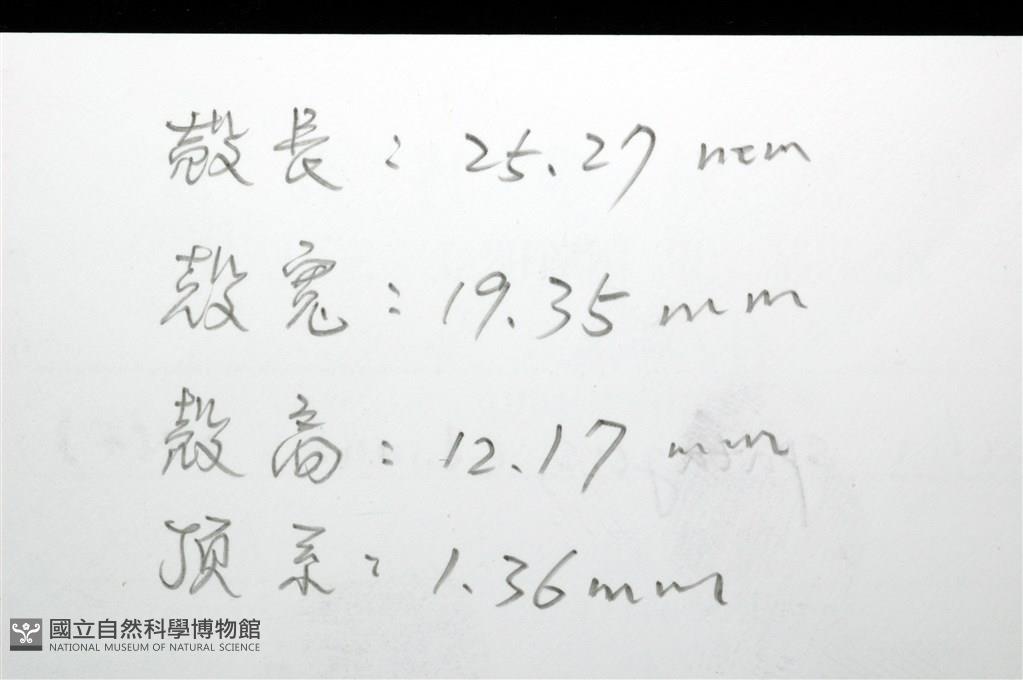 殼長: 25.27 mm
殼寬: 19.35 mm
殼高: 12.17 mm
頂系: 1.36mm
國立自然科學博物館
NATIONAL MUSEUM OF NATURAL SCIENCE